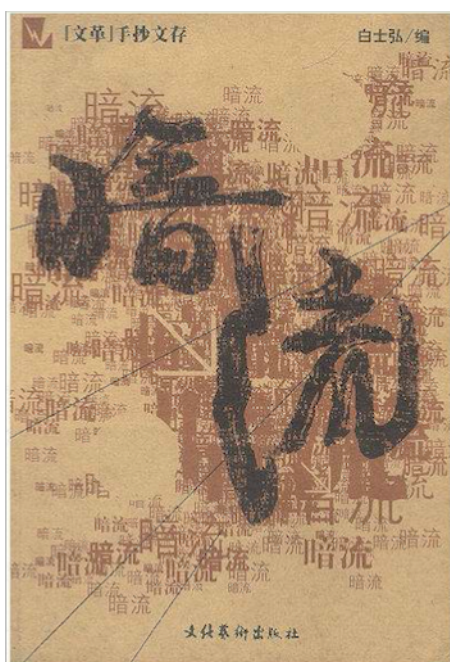 「文革」手抄文存
白士弘/编
暗流
文化藝術出版社